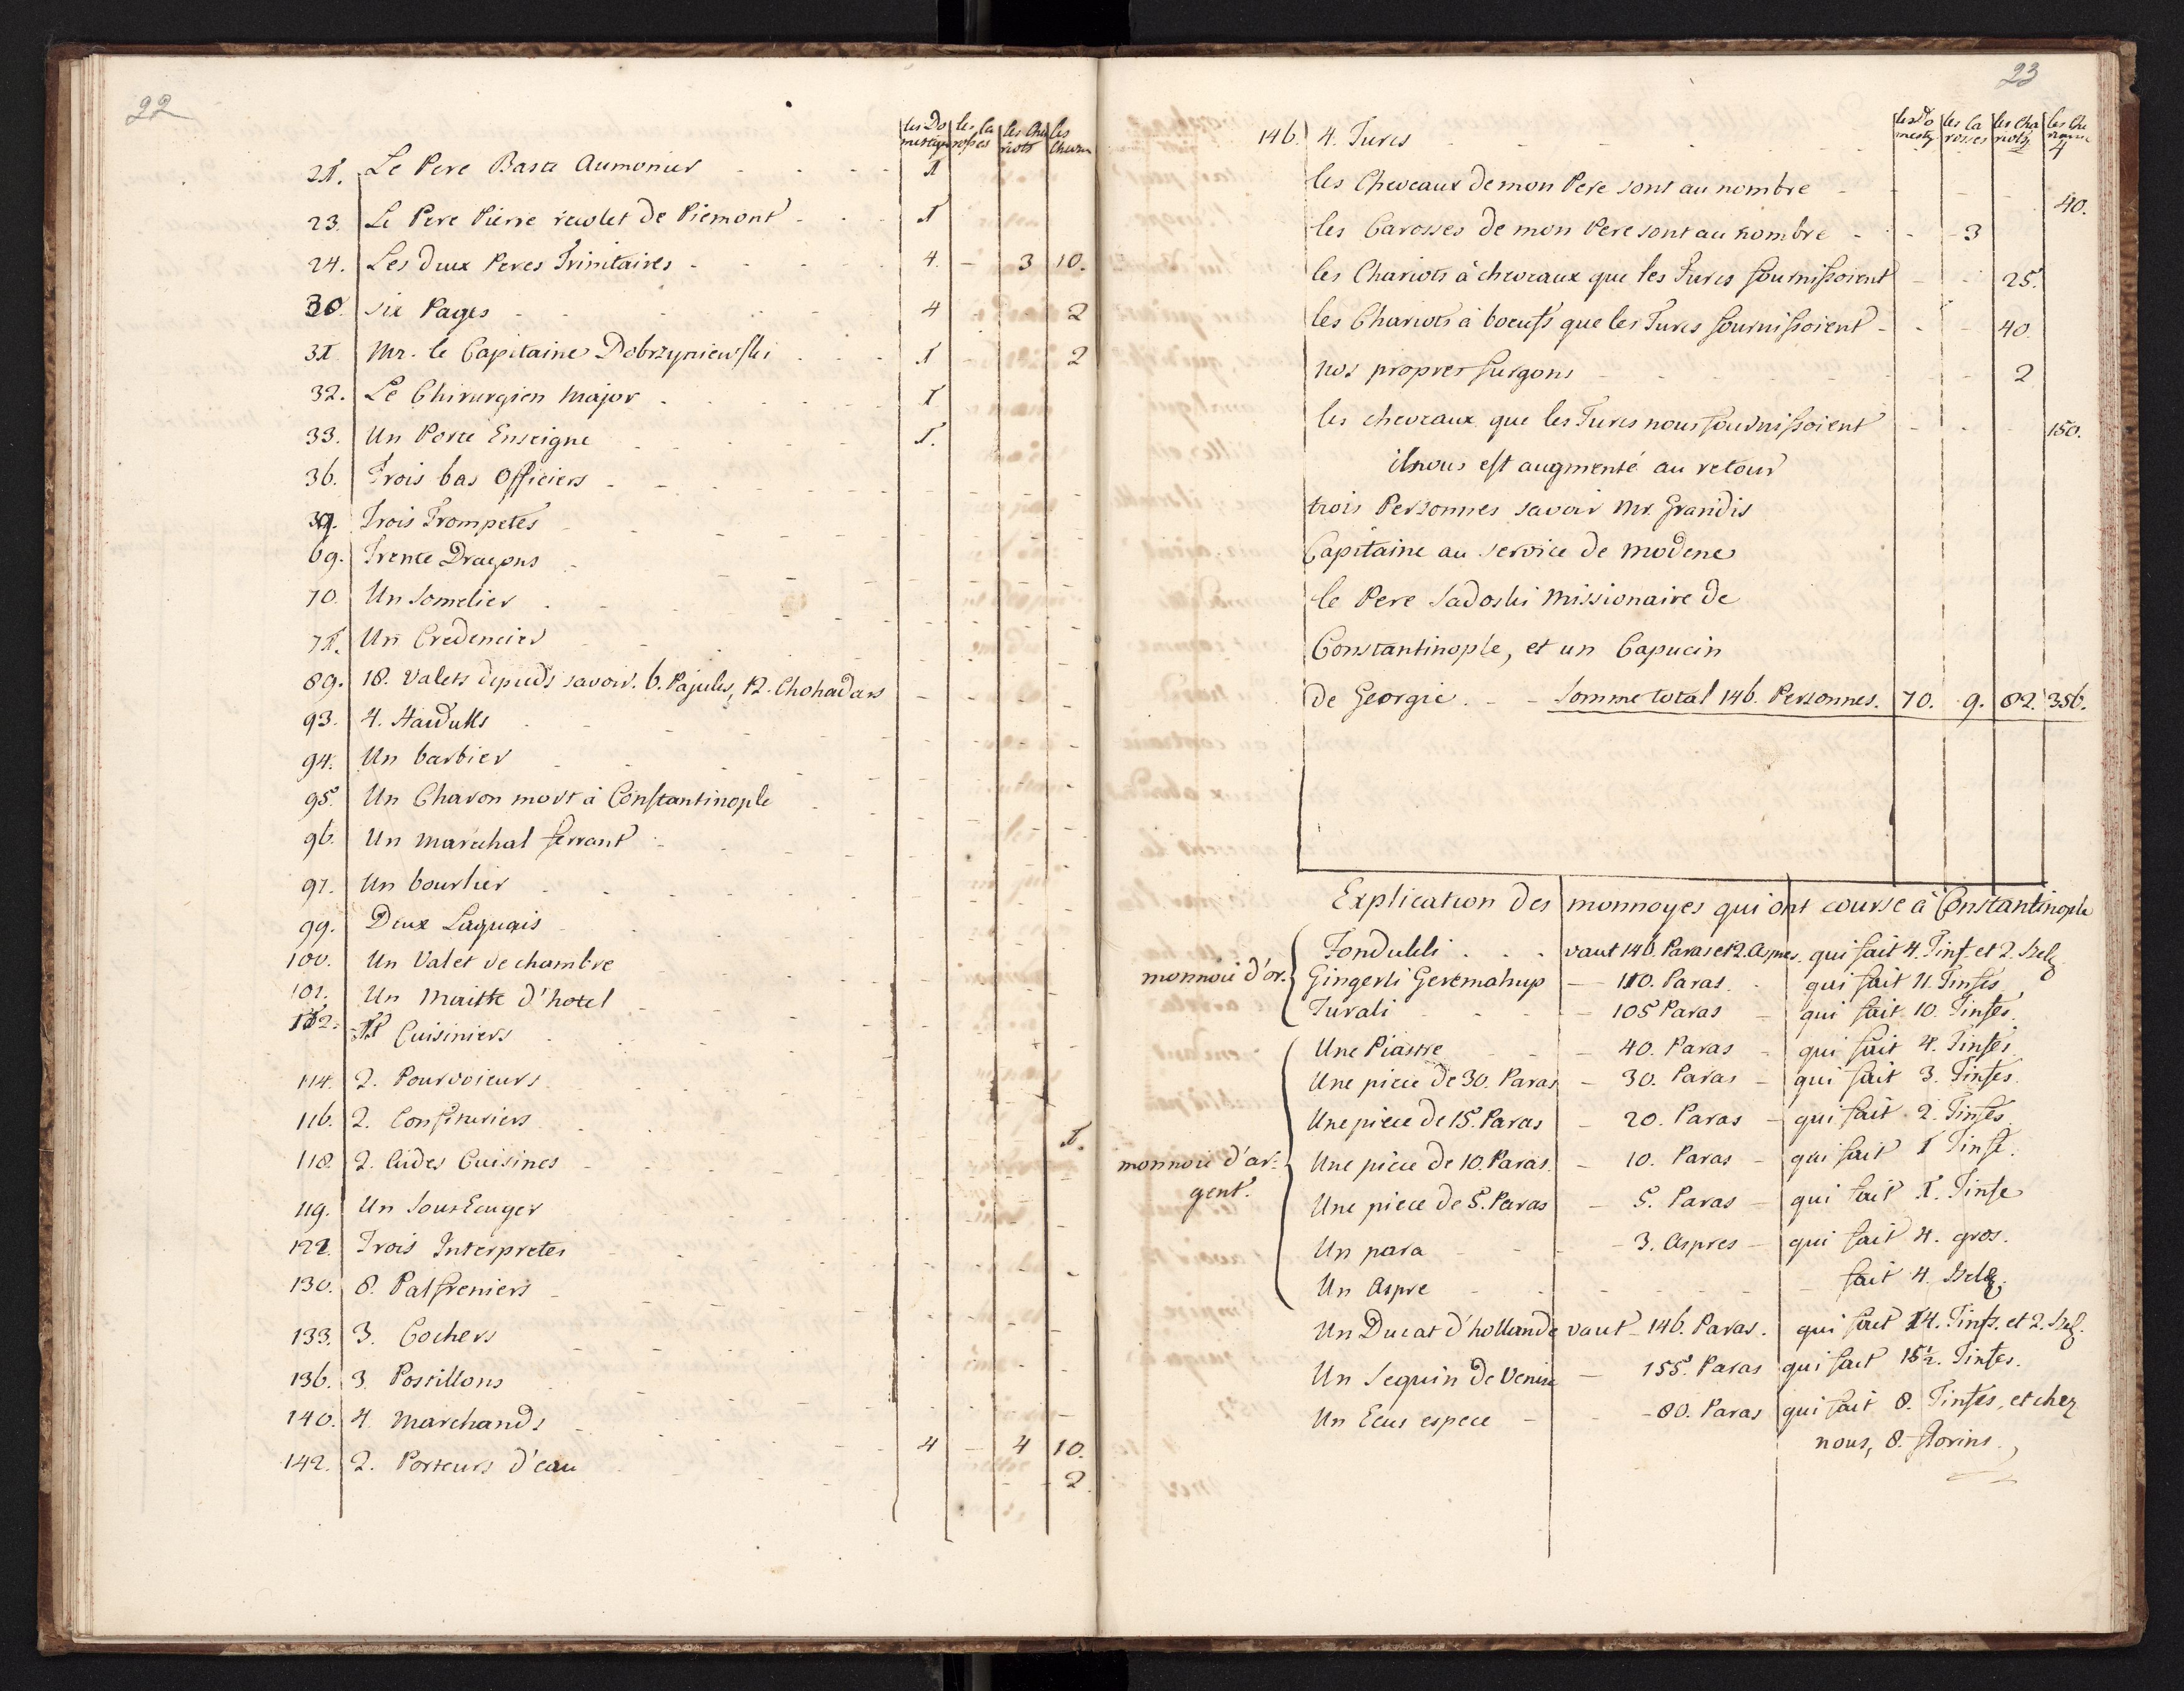 22
les Do les Ca les Cha les
mestiqu rosses riots Chevau
21. Le Pere Basta Aumonier - - - 1
23. Le Pere Pierre recolet de Piemont - - 1
24. Les deux Peres Trinitaires - - - - 4. - 3 10.
30. six Pages - - - - 4 - - 2
31. Mr. le Capitaine Dobrzyniewski - - - 1 - - 2
32. Le Chirurgien Major - - - - 1
33. Un Porte Enseigne - - - - 1.
36. Trois bas Officiers - - -
39. Trois Trompetes
69. Trente Dragons -
70. Un Somelier -
71. Un Credencier
89. 18. Valets depieds savoir. 6. Pajules, 12. Chohadars
93. 4. Haiduks
94. Un barbier
95. Un Charon mort à Constantinople
96. Un Marechal ferrant
97. Un bourlier
99. Deux Laquais
100. Un Valet de chambre
101. Un Maitre d'hotel
112. 11 Cuisiniers
114. 2. Pourvoieurs
116. 2. Confituriers
118. 2. Aides Cuisines 1.
119. Un
122. Trois Interpretes
130. 8. Palfreniers
133. 3. Cochers
136. 3. Postillons
140. 4. Marchands - - - - 4 - 4 10.
142. 2. Porteurs d'eau - - 2.
23
les Do les Ca les Cha les Che
mestiq rosses riots vaux
146. 4. Turcs - - - - 4
les Cheveaux de mon Pere sont au nombre - - - 40.
les Carosses de mon Pere sont au nombre - - 3
les Chariots à chevaux que les Turcs fournissoient - - 25.
les Chariots à boeufs que les Turcs fournissoient - - - 40.
nos propres furgons - - - - 2
les chevaux que les Turcs nous fournissoient - - - 150.
il nous est augmenté au retour
trois Personnes savoir Mr. Grandis
Capitaine au service de Modene
le Pere Sadoski Missionaire de
Constantinople, et un Capucin
de Georgie. - - Somme total 146. Personnes. 70. 9. 82. 356.
Explication des monnoyes qui ont course à Constantinople
monnoie d'or. Fondukli . . . vaut 146. Paras et 2. Aspres. qui fait 4. Tinf. et 2. Szelz
Gingerli Geremahup - 110. Paras. - qui fait 11. Tinfes
Turali - - - 105 Paras - qui fait 10. Tinfes.
Une Piastre - - - 40. Paras - qui fait 4. Tinfes.
Une piece de 30. Paras - 30. Paras - qui fait 3. Tinfes.
Une piece de 15. Paras - 20. Paras - qui fait 2. Tinfes.
monnoie d'ar- Une piece de 10. Paras. - 10. Paras - qui fait 1 Tinfe.
gent. Une piece de 5. Paras - 5. Paras - qui fait 1. Tinfe
Un para - - - 3. Aspres - qui fait 4. gros.
Un Aspre - - - - fait 4. Szelz.
Un Ducat d'hollande vaut - 146. Paras. qui fait 14. Tinfs. et 2. Szel.
Un Sequin de Venise - 155. Paras qui fait 15½. Tinfes.
Un Ecus espece - - - 80. Paras qui fait 8. Tinfes, et chez
nous, 8. florins.